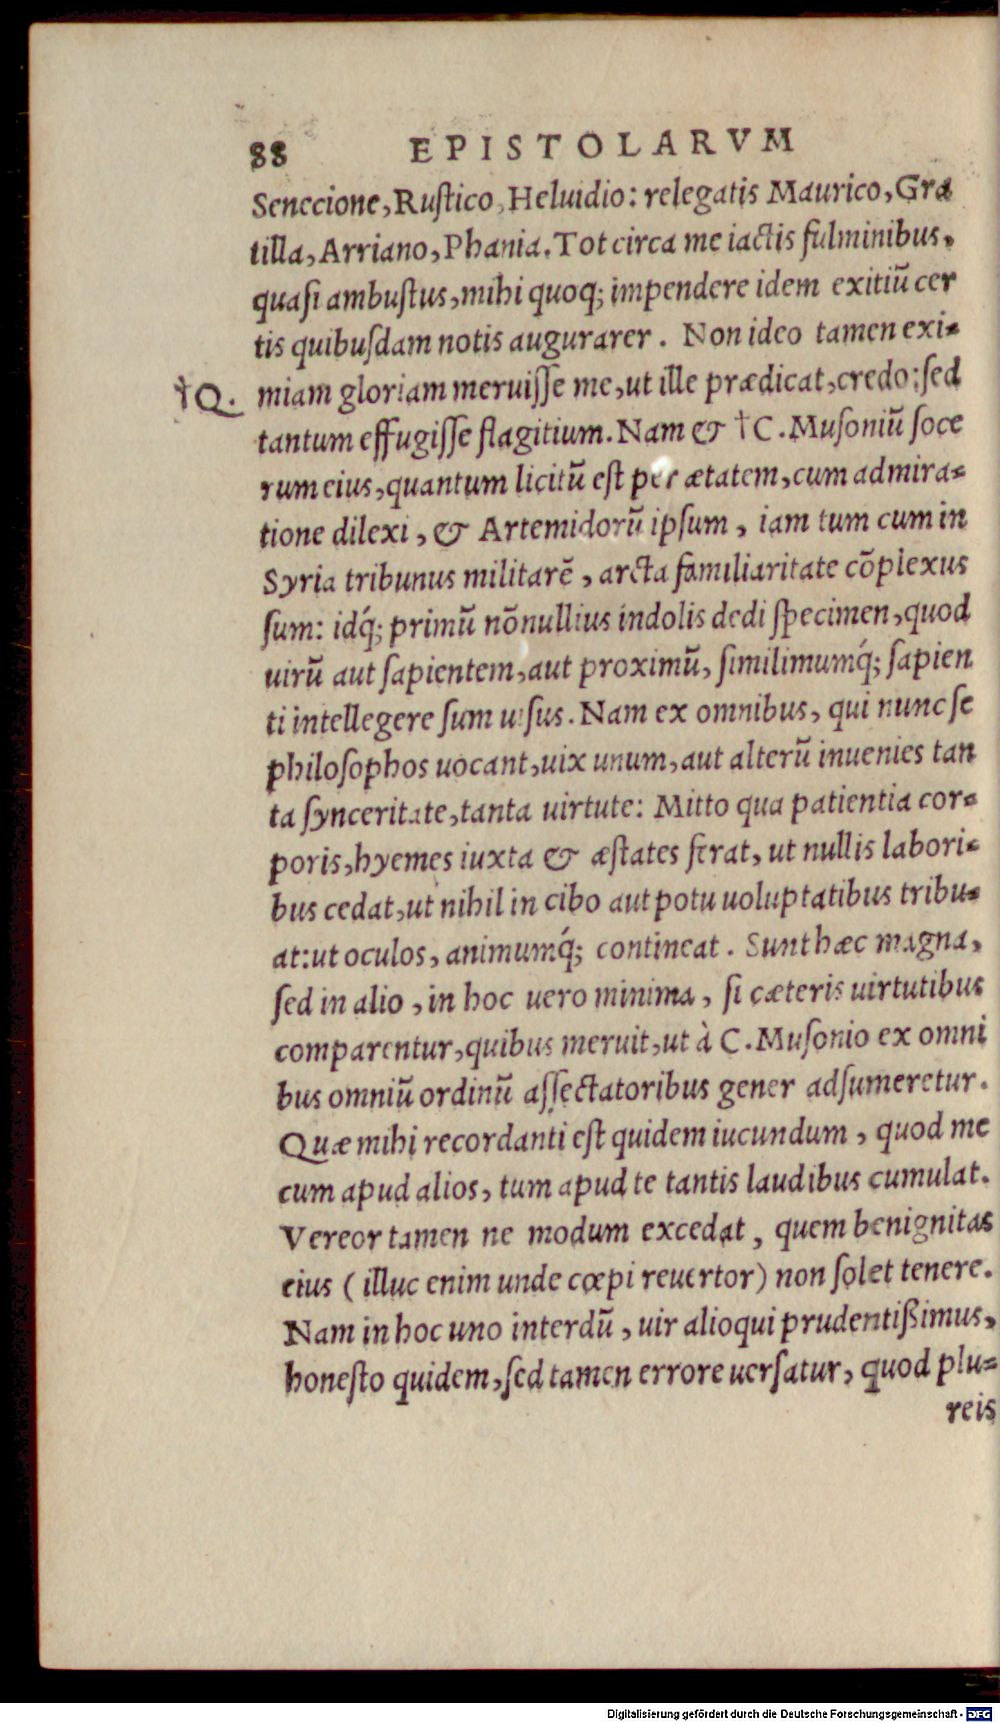 88 EPISTOLARVM
Senecione, Rustico, Heluidio: relegatis Maurico, Gra
tilla, Arriano, Phania. Tot circa me iactis fulminibus,
quasi ambustus, mihi quoq; impendere idem exitiũ cer
tis quibusdam notis augurarer. Non ideo tamen exi-
†Q. miam gloriam meruisse me, ut ille prædicat, credo: sed
tantum effugisse flagitium. Nam & †C. Musoniũ soce
rum eius, quantum licitũ est per ætatem, cum admira-
tione dilexi, & Artemidorũ ipsum, iam tum cum in
Syria tribunus militarẽ, arcta familiaritate cõplexus
sum: idq́; primũ nõnullius indolis dedi specimen, quod
uirũ aut sapientem, aut proximũ, similimumq́; sapien
ti intellegere sum uisus. Nam ex omnibus, qui nunc se
philosophos uocant, uix unum, aut alterũ inuenies tan
ta synceritate, tanta uirtute: Mitto qua patientia cor-
poris, hyemes iuxta & æstates ferat, ut nullis labori-
bus cedat, ut nihil in cibo aut potu uoluptatibus tribu-
at: ut oculos, animumq́; contineat. Sunt hæc magna,
sed in alio, in hoc uero minima, si cæteris uirtutibus
comparentur, quibus meruit, ut à C. Musonio ex omni
bus omniũ ordinũ assectatoribus gener adsumeretur.
Quæ mihi recordanti est quidem iucundum, quod me
cum apud alios, tum apud te tantis laudibus cumulat.
Vereor tamen ne modum excedat, quem benignitas
eius (illuc enim unde cœpi reuertor) non solet tenere.
Nam in hoc uno interdũ, uir alioqui prudentißimus,
honesto quidem, sed tamen errore uersatur, quod plu-
reis
Digitalisierung gefördert durch die Deutsche Forschungsgemeinschaft - DFG